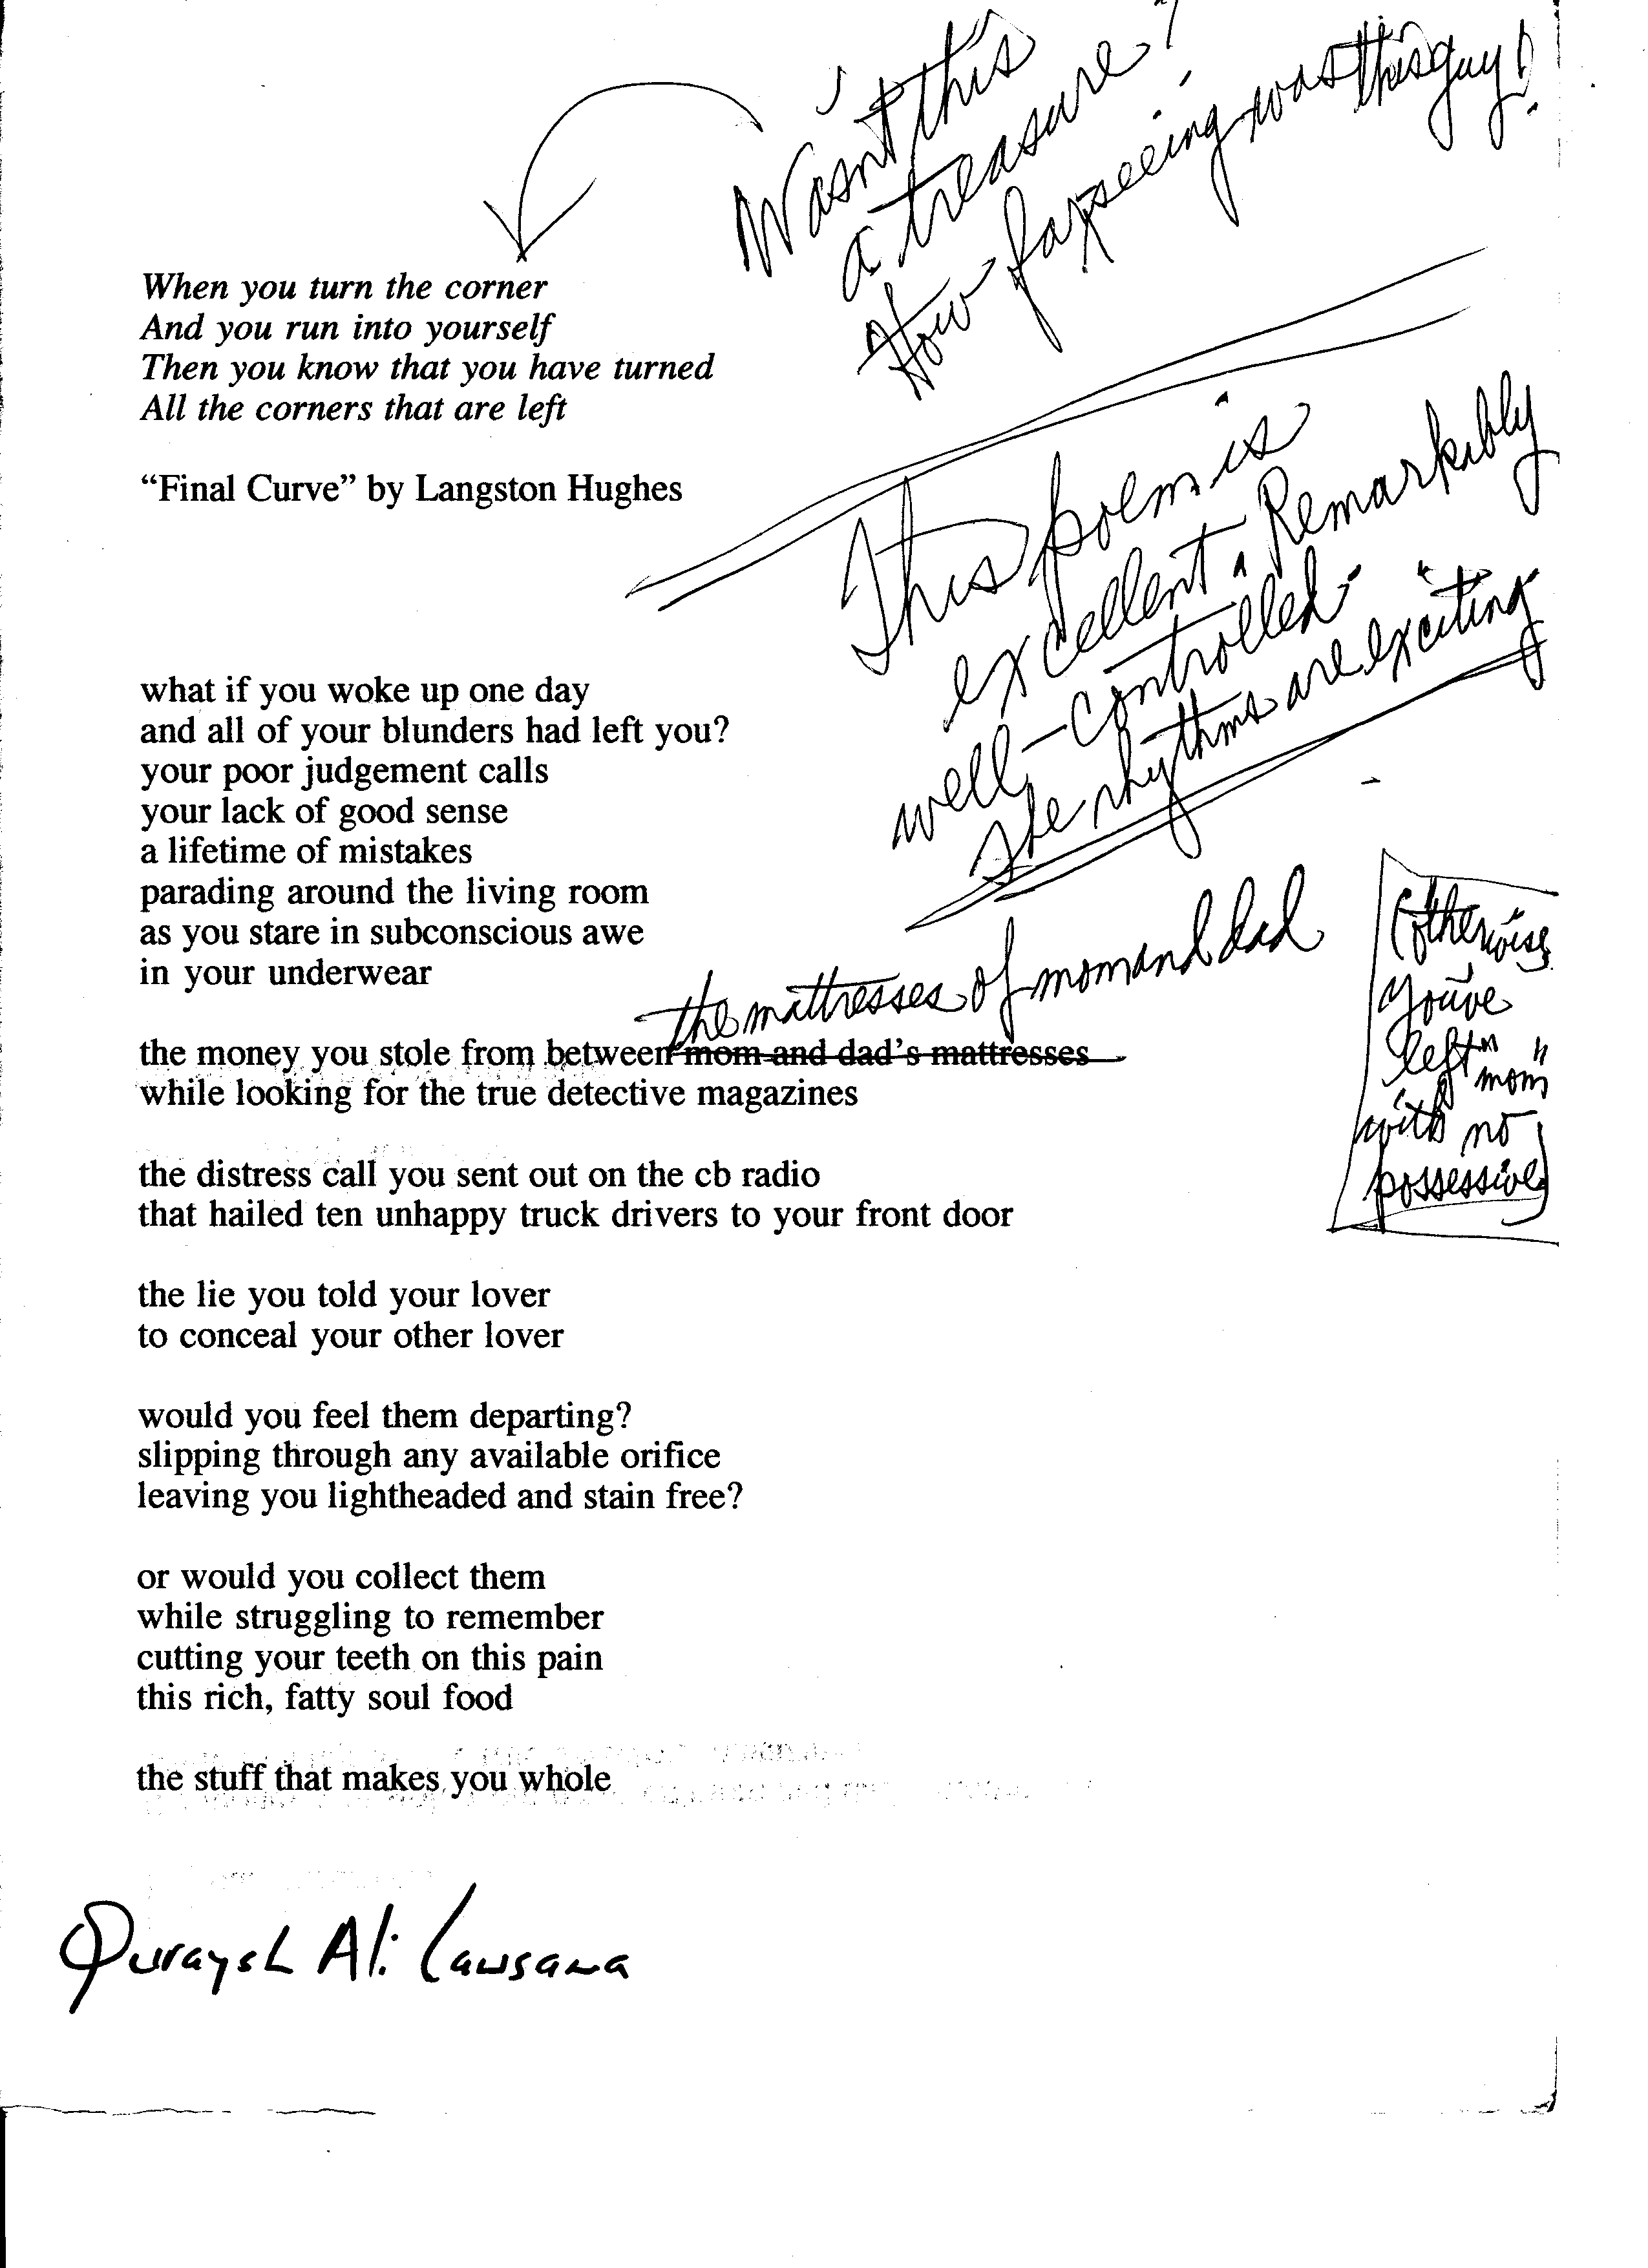 Wasn't this
a treasure?
How farseeing was this guy!
When you turn the corner
And you run into yourself
Then you know that you have turned
All the corners that are left
“Final Curve” by Langston Hughes
This poem is
excellent. Remarkably
well-controlled.
The rhythms are exciting
what if you woke up one day
and all of your blunders had left you?
your poor judgement calls
your lack of good sense
a lifetime of mistakes
parading around the living room
as you stare in subconscious awe
in your underwear
the mattresses of mom and dad
the money you stole from between mom and dad's mattresses
while looking for the true detective magazines
(otherwise
you've
left "mom"
with no
possessive)
the distress call you sent out on the cb radio
that hailed ten unhappy truck drivers to your front door
the lie you told your lover
to conceal your other lover
would you feel them departing?
slipping through any available orifice
leaving you lightheaded and stain free?
or would you collect them
while struggling to remember
cutting your teeth on this pain
this rich, fatty soul food
the stuff that makes you whole
Quraysh Ali Lansana